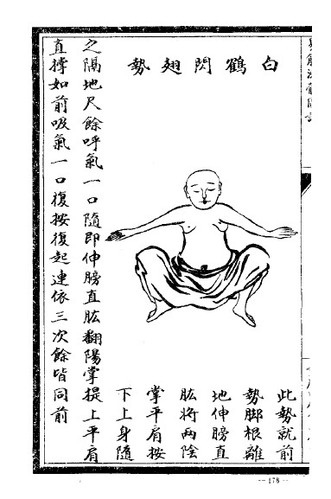 白鶴閃翅勢
此勢就前
勢脚根離
地伸膀直
肱將兩陰
掌平肩按
下上身隨
之隔地尺餘呼氣一口隨即伸膀直肱翻陽掌提上平肩
直撑如前吸氣一口復按復起連依三次餘皆同前
— 178 —